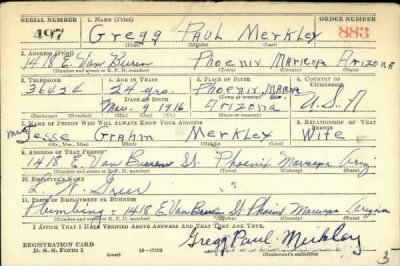 SERIAL NUMBER 1. NAME (Print) ORDER NUMBER
497 Gregg Paul Merkley 883
(First) (Middle) (Last)
2. ADDRESS (Print)
1418 E. Van Buren Phoenix Maricopa Arizona
(Number and street or R. F. D. number) (Town) (County) (State)
3. TELEPHONE 4. AGE IN YEARS 5. PLACE OF BIRTH 6. COUNTRY OF CITIZENSHIP
36426 24 yrs. Phoenix, Maricopa Co. U.S.A
DATE OF BIRTH (Town or county)
Mar. 9 1916 Arizona
(Exchange) (Number) (Mo.) (Day) (Yr.) (State or country)
7. NAME OF PERSON WHO WILL ALWAYS KNOW YOUR ADDRESS 8. RELATIONSHIP OF THAT PERSON
Mrs Jesse Graham Merkley Wife
(Mr., Mrs., Miss) (First) (Middle) (Last)
9. ADDRESS OF THAT PERSON
1418 E. Van Buren St. Phoenix Maricopa Ariz.
(Number and street or R. F. D. number) (Town) (County) (State)
10. EMPLOYER'S NAME
L. W.
11. PLACE OF EMPLOYMENT OR BUSINESS
Plumbing - 1418 E. Van Buren St Phoenix Maricopa Arizona
(Number and street or R. F. D. number) (Town) (County) (State)
I AFFIRM THAT I HAVE VERIFIED ABOVE ANSWERS AND THAT THEY ARE TRUE.
REGISTRATION CARD Gregg Paul Merkley
D. S. S. Form 1 (Registrant's signature)